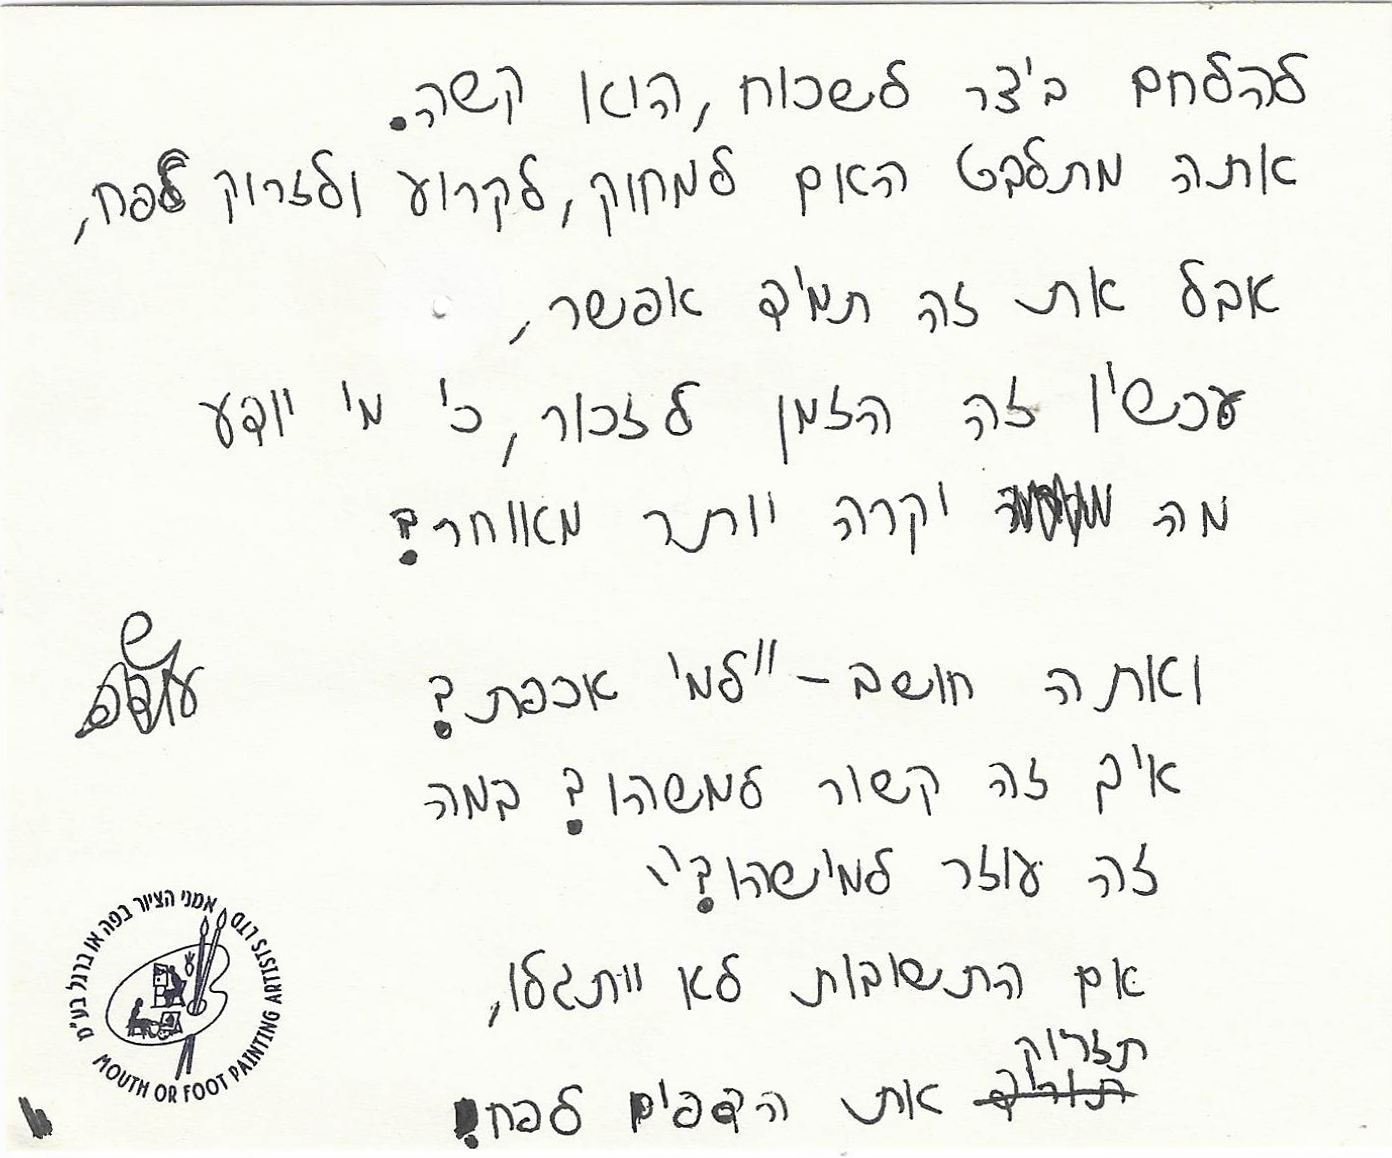 להלחם ביצר לשכוח, הוא קשה.
אתה מתלבט האם למחוק, לקרוע ולזרוק לפח,
אבל את זה תמיד אפשר,
עכשיו זה הזמן לזכור, כי מי יודע
מה יקרה יותר מאוחר?
ואתה חושב – "למי אכפת?
איך זה קשור למשהו? במה
זה עוזר למישהו?"
אם התשובות לא ייתגלו,
תזרוק
את הדפים לפח!
אמני הציור בפה או ברגל בע"מ
MOUTH OR FOOT PAINTING ARTISTS LTD